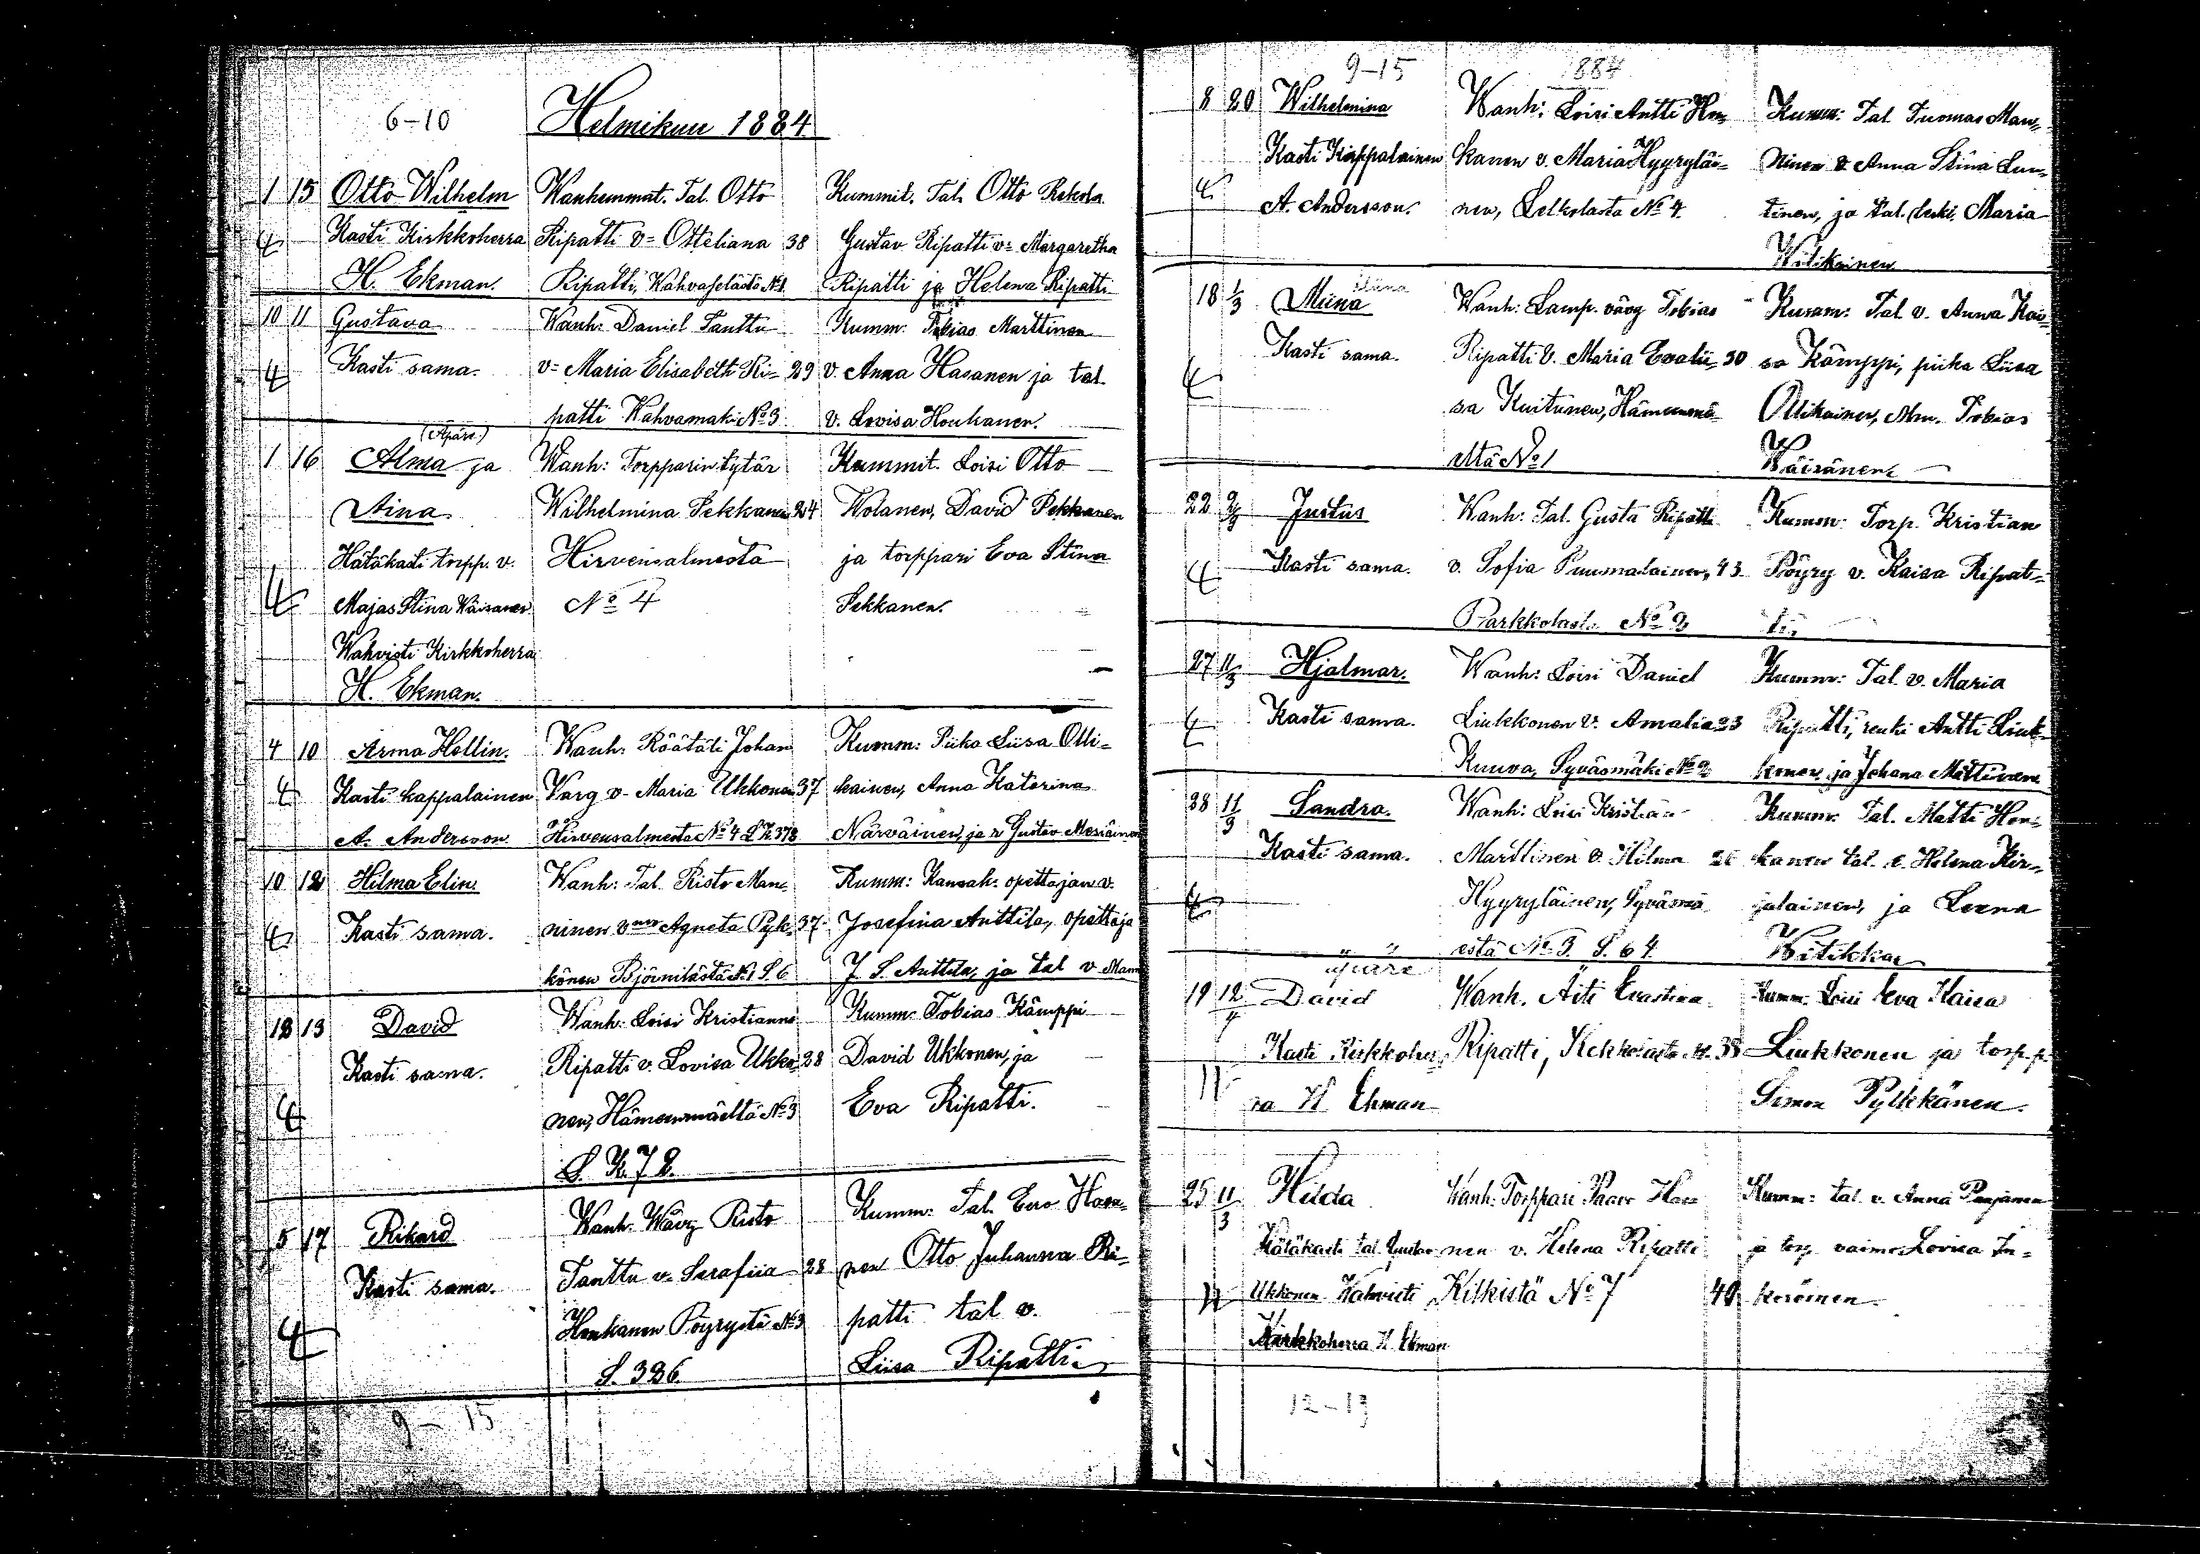 6-10 Helmikuu 1884
1 15 Otto Wilhelm Wanhemmat. Tal. Otto Kummit. Tal. Otto Rekola
Kasti Kirkkoherra Ripatti v= Otteliana 38 Gustav Ripatti v= Margaretha
H. Ekman. Ripatti, Kahvaselästä No 1 Ripatti ja Helena Ripatti
10 11 Gustava Wanh: Daniel Tanttu Kumm: Tobias Marttinen
4 Kasti sama. v= Maria Elisabeth Ri= 29 v. Anna Hasanen ja tal.
patti Kahvamäki No 3 v. Lovisa Houkanen.
(Äpäre)
1 16 Alma ja Wanh: Torpparin tytär Kummit. Loisi Otto
Aina Wilhelmina Pekkanen 24 Kolanen, David Pekkanen
Hätäkasti torpp. v. Hirvensalmesta ja torppari Eva Stina
4 Majas Stina Wäisänen No 4 Pekkanen.
Wahvisti Kirkkoherra
H. Ekman.
4 10 Arma Hellin. Wanh: Räätäli Johan Kumm: Piika Liisa Olli=
4 Kasti kappalainen Varg v= Maria Ukkonen 37 kainen, Anna Katarina
A. Andersson. Hirvensalmesta No 4 L K 378 Närväinen, ja r Gustav Mesiäinen
10 12 Hilma Elin Wanh: Tal. Risto Man= Kumm: Kansak. opettajan v.
4 Kasti sama. ninen v Agneta Pyk= 37 Josefina Anttila, opettaja
könen Björnilästä No 1 S. 6 J. S. Anttila, ja tal v
12 13 David Wanh: Loisi Kristianno Kumm: Tobias Kämppi
Kasti sama. Ripatti v. Lovisa Ukko= 28 David Ukkonen, ja
4 nen, Hämeenmäeltä No 3 Eva Ripatti.
L. K. 72.
5 17 Rikard Wanh: Wävy Risto Kumm: Tal. Eero Hasa=
Kasti sama. Tanttu v= Serafiia 28 nen Otto Juhanna Ri=
4 Honkanen Pöyrystä No 3 patti tal v.
S. 336 Liisa Ripatti
9 - 15
9-15 1884
8 20 Wilhelmina Wanh: Loisi Antti Hon= Kumm: Tal. Tuomas Man=
Kasti Kappalainen kanen v. Maria Hyyryläi= ninen & Anna Stina Luu=
4 A. Andersson. nen, Lelkolasta No 4. tinen, ja tal. leski Maria
Witikainen
18 1/3 Miina Wanh: Lamp. vävy Tobias Kumm: Tal v. Anna Kai=
Kasti sama. Ripatti v. Maria Evalii= 30 sa Kämppi, piika Liisa
4 sa Kuitunen, Hämeenmä= Ollikainen, Mm. Tobias
eltä No 1 Wäisänen.
22 2/3 Justus Wanh: Tal. Gusta Ripatti Kumm: Torp. Kristian
4 Kasti sama. v. Sofia Puumalainen, 43 Pöyry v. Kaisa Ripat=
Parkkolasta No 2 ti,
27 11/3 Hjalmar. Wanh: Loisi Daniel Kumm: Tal. v. Maria
4 Kasti sama. Liukkonen v. Amalia 23 Ripatti, renki Antti Liuk=
Kuuva, Syväsmäki No 2 konen, ja Johana Mattinen
28 11/3 Sandra. Wanh: Loisi Kristian Kumm: Tal. Matti Hon=
Kasti sama. Marttinen v. Hilma 26 kanen tal. v. Helena Kir=
4 Hyyryläinen, Syväsmä= jalainen, ja Leena
estä No 3 S. 64 Witikka
äpäre
19 12/4 David Wanh. Äiti Evastina Kumm: Loisi Eva Kaisa
Kasti Kirkkoher= Ripatti, Kekkolasta 38 Liukkonen ja torp. p
ra H Ekman Simon Pylkkänen.
25 11/3 Hilda Wanh: Torppari Paavo Kumm: tal. v. Anna
Hätäkasti tal. Gustav nen v. Helena Ripatti ja torp vaimo Lovisa In=
Ukkonen Wahvisti Kilkistä No 7 40 keröinen.
Kirkkoherra H Ekman
12-13